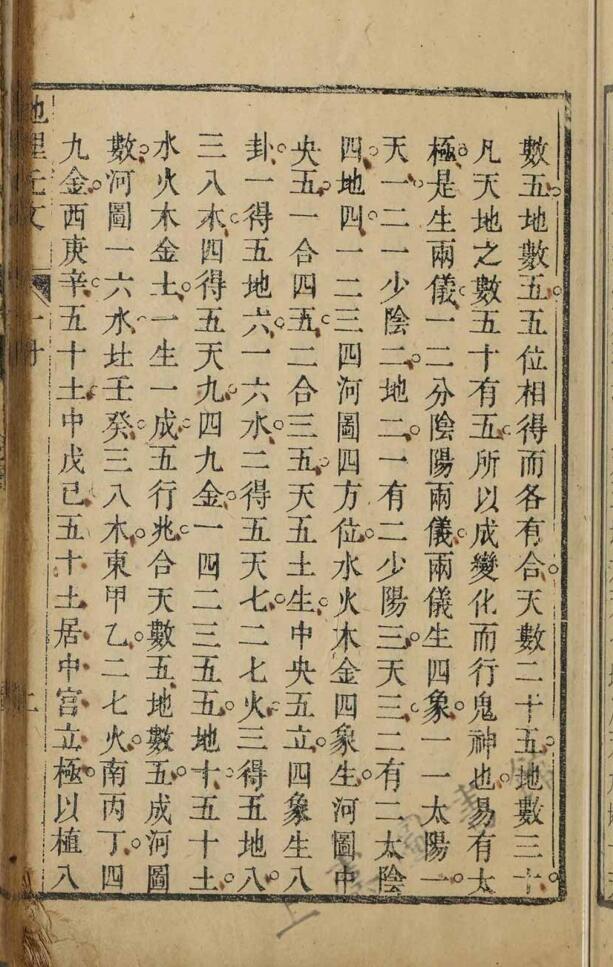 數五地數五五位相得而各有合天數二十五地數三十
凡天地之數五十有五所以成變化而行鬼神也易有太
極是生兩儀一二分陰陽兩儀兩儀生四象一一太陽一
天一二一少陰二地二一有二少陽三天三二有二太陰
四地四一二三四河圖四方位水火木金四象生河圖中
央五一合四五二合三五天五土生中央五立四象生八
卦一得五地六一六水二得五天七二七火三得五地八
三八木四得五天九四九金一四二三五五地十五十土
水火木金土一生一成五行兆合天數五地數五成河圖
數河圖一六水壯壬癸三八木東甲乙二七火南丙丁四
九金西庚辛五十土中戊己五十土居中宮立極以植八
地理元文